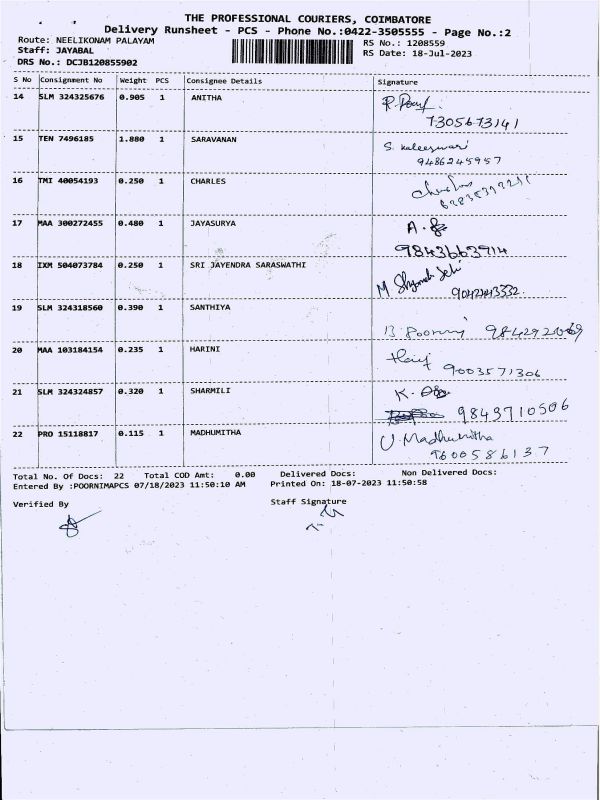 THE PROFESSIONAL COURIERS, COIMBATORE
Delivery Runsheet - PCS - Phone No.:0422-3505555 - Page No.:2
Route: NEELIKONAM PALAYAM
RS No.: 1208559
Staff: JAYABAL
RS Date: 18-Jul-2023
DRS No.: DCJB120855902
S No Consignment No Weight PCS Consignee Details Signature
14 SLM 324325676 0.905 1 ANITHA
7305673141
15 TEN 7496185 1.880 1 SARAVANAN S. Kaleeswari
9486245957
16 TMI 40054193 0.250 1 CHARLES
17 MAA 300272455 0.480 1 JAYASURYA A.
9843663914
18 IXM 504073784 0.250 1 SRI JAYENDRA SARASWATHI M
19 SLM 324318560 0.390 1 SANTHIYA
20 MAA 103184154 0.235 1 HARINI
9003571306
21 SLM 324324857 0.320 1 SHARMILI K.
9843710506
22 PRO 15118817 0.115 1 MADHUMITHA U. Madhumitha
9600586137
Total No. Of Docs: 22 Total COD Amt: 0.00 Delivered Docs: Non Delivered Docs:
Entered By :POORNIMAPCS 07/18/2023 11:50:10 AM Printed On: 18-07-2023 11:50:58
Verified By Staff Signature